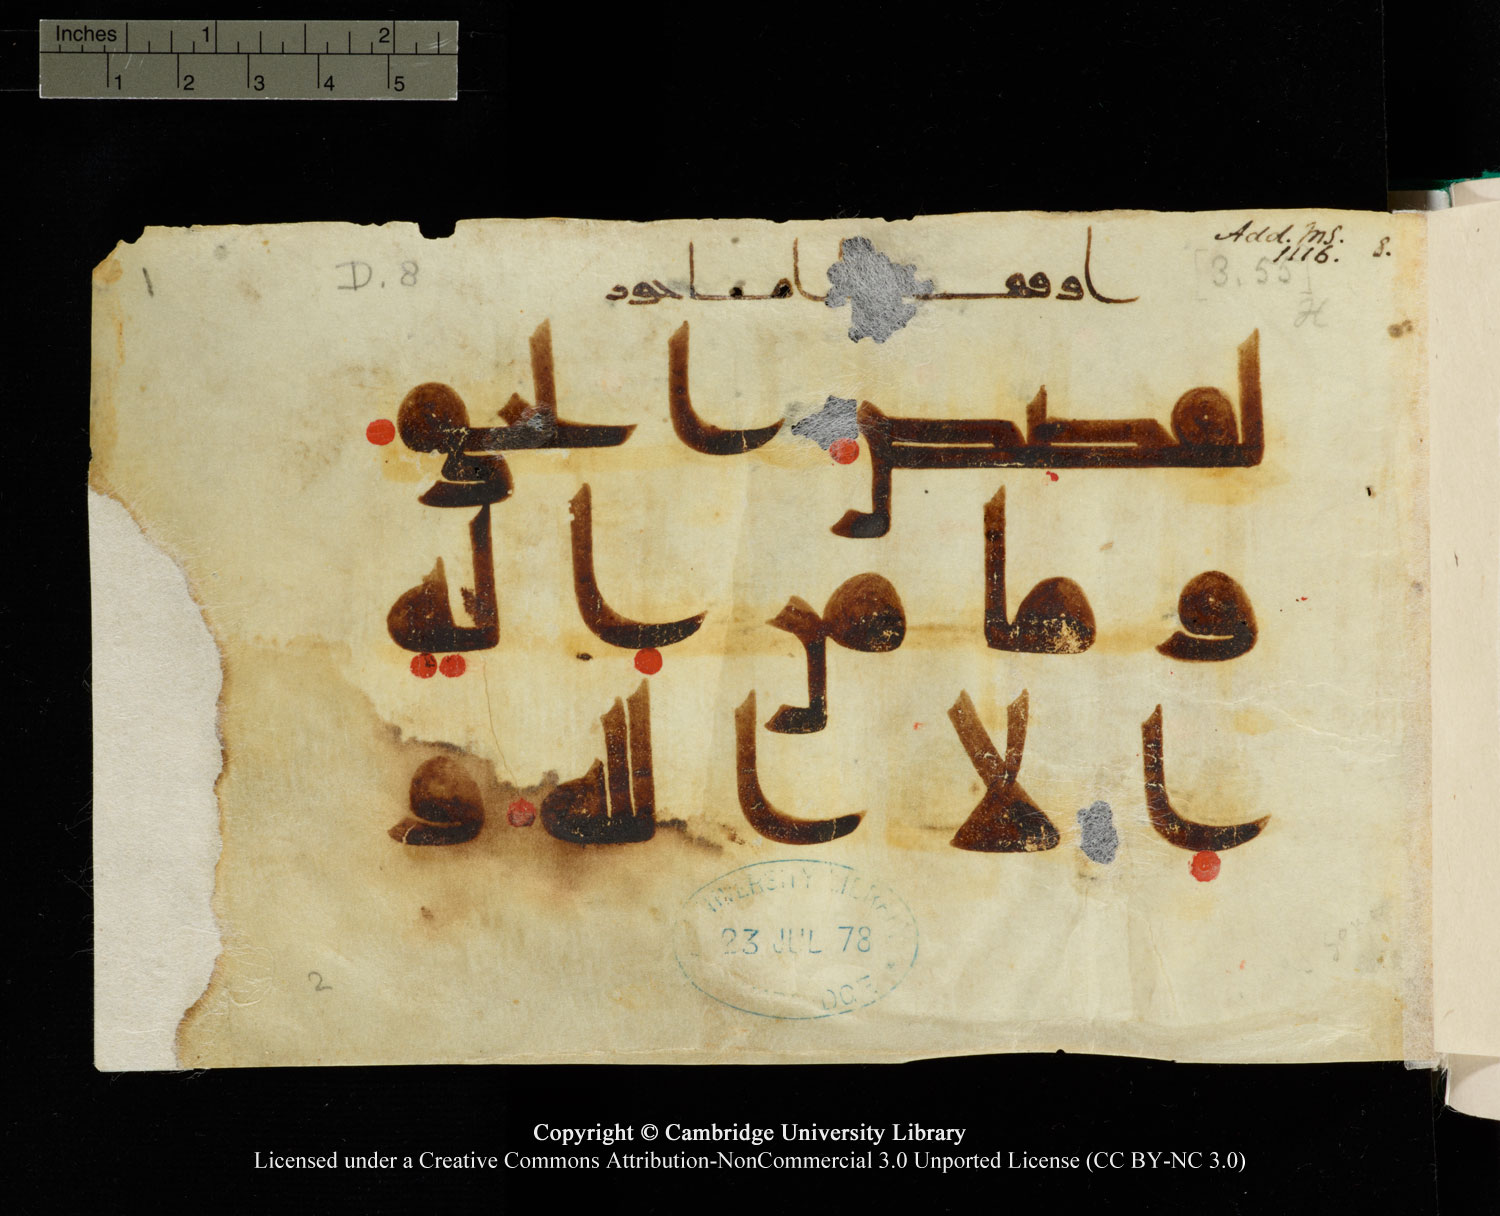 Inches 1 2
1 2 3 4 5
Add. MS. 8.
1116.
[3, 55]
D. 8
1
اماجور
لقصص الحق
وما من اله
الا الله و
UNIVERSITY LIBRARY
23 JUL 78
2
Copyright © Cambridge University Library
Licensed under a Creative Commons Attribution-NonCommercial 3.0 Unported License (CC BY-NC 3.0)